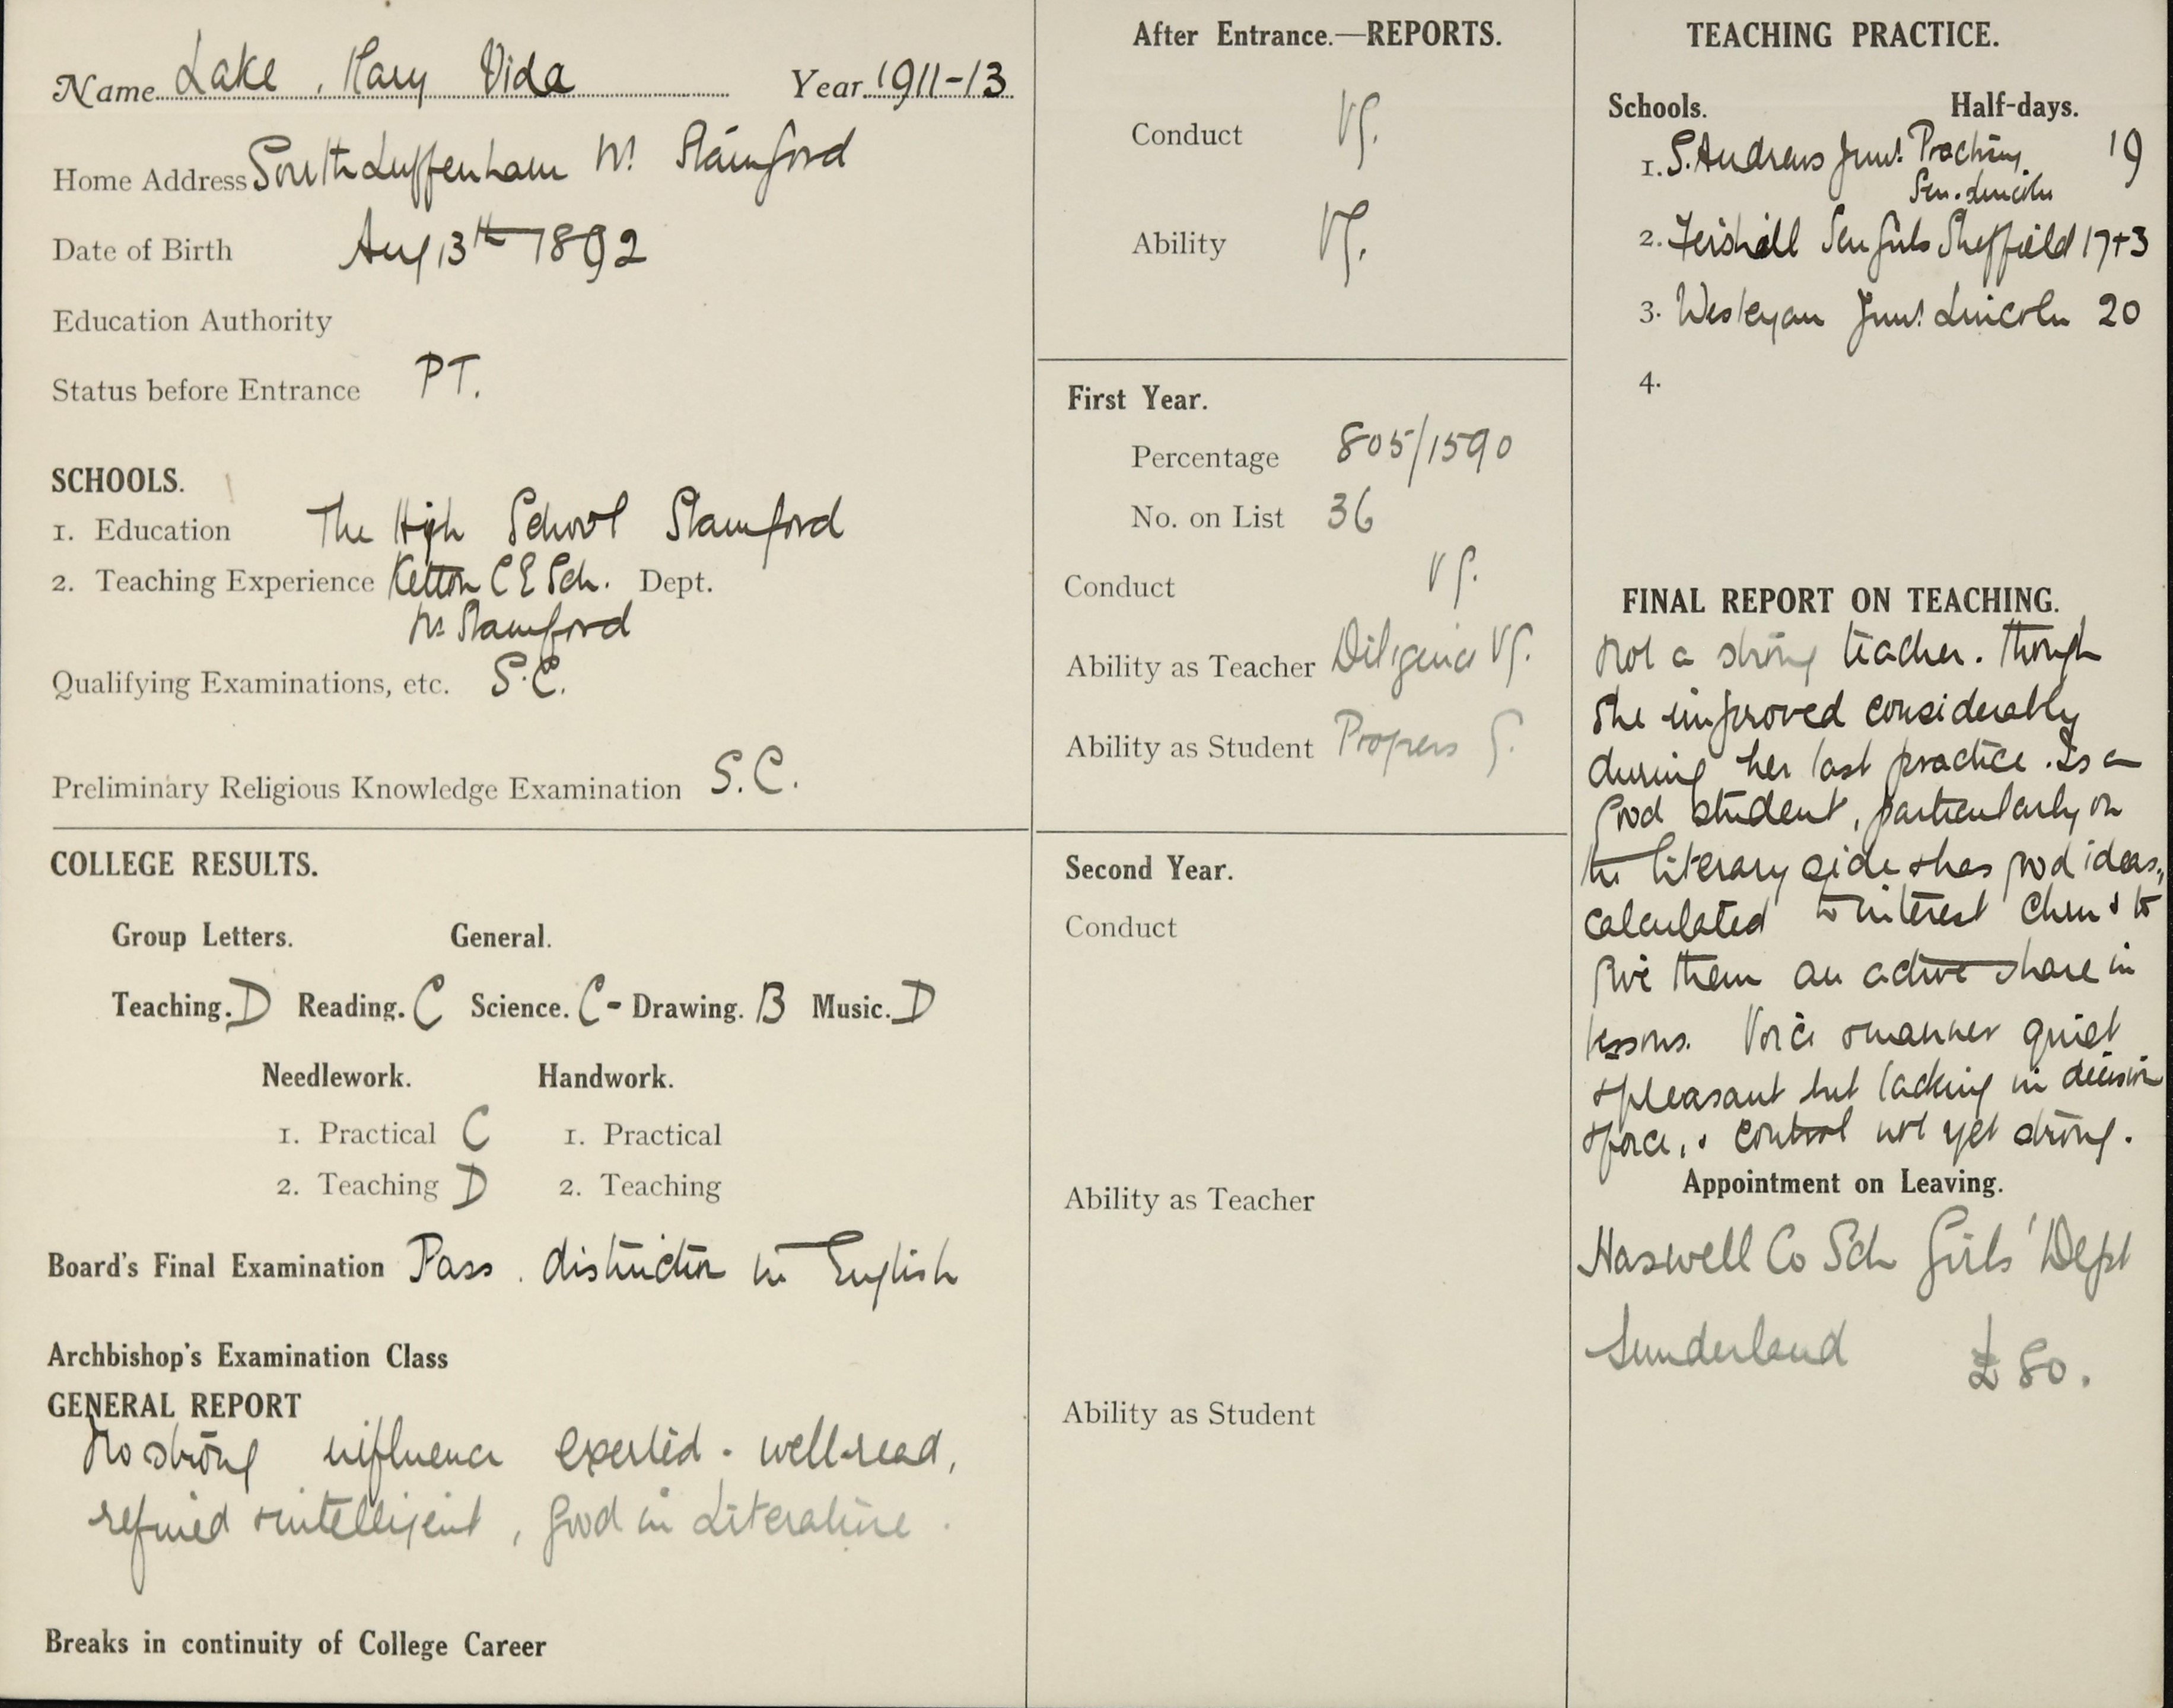 Name Lake, Mary Vida Year 1911-13
Home Address South Luffenham Nr Stamford
Date of Birth Aug 13th 1892
Education Authority
Status before Entrance PT.
SCHOOLS.
1. Education The High School Stamford
2. Teaching Experience Ketton C E Sch. Dept.
Nr Stamford
Qualifying Examinations, etc. S.C.
Preliminary Religious Knowledge Examination S.C.
COLLEGE RESULTS.
Group Letters. General.
Teaching. D Reading. C Science. C- Drawing. B Music. D
Needlework. Handwork.
1. Practical C 1. Practical
2. Teaching D 2. Teaching
Board's Final Examination Pass. distinction in English
Archbishop's Examination Class
GENERAL REPORT
No strong influence exerted - well-read,
refined & intelligent, good in Literature.
Breaks in continuity of College Career
After Entrance.—REPORTS.
Conduct VG.
Ability VG.
First Year.
Percentage 805/1590
No. on List 36
Conduct VG.
Ability as Teacher Diligence VG.
Ability as Student Progress G.
Second Year.
Conduct
Ability as Teacher
Ability as Student
TEACHING PRACTICE.
Schools. Half-days.
1. S. Andrews Junr. 19
Sen. Lincoln
2. Sen Girls Sheffield 17+3
3. Wesleyan Junr. Lincoln 20
4.
FINAL REPORT ON TEACHING.
Not a strong teacher. though
she improved considerably
during her last practice. Is a
good student, particularly on
the literary side & has good ideas,
calculated to interest chn & to
give them an active share in
lessons. Voice & manner quiet
& pleasant but lacking in decision
& force, & control not yet strong.
Appointment on Leaving.
Haswell Co Sch Girls' Dept
Sunderland £80.